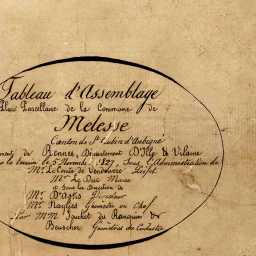 Tableau d'Assemblage
Plan Parcellaire de la Commune de
Melesse
Canton de St Aubin d'Aubigné
ment de Rennes, Département D'Ille & Vilaine
le terrain le 5 Novemb. 1827, Sous l'Administration de
Mr Le Comte de Vendeuvre Préfet
Mr Le Duc Maire
& Sous la direction de
Mr D'Astis Directeur
Mr Naylies Géomètre en Chef
Par MM
Beuscher Géomètres du Cadastre